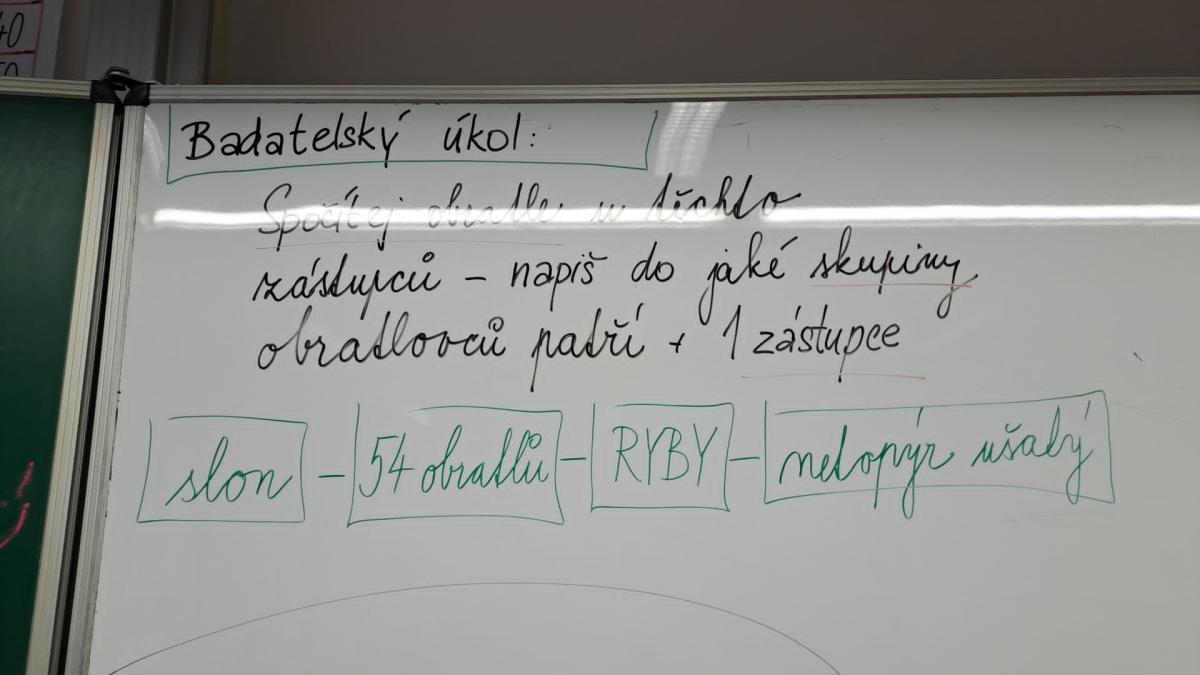 40
50
Badatelský úkol:
Spočítej obratle u těchto
zástupců - napiš do jaké skupiny
obratlovců patří + 1 zástupce
slon - 54 obratlů - RYBY - netopýr ušatý